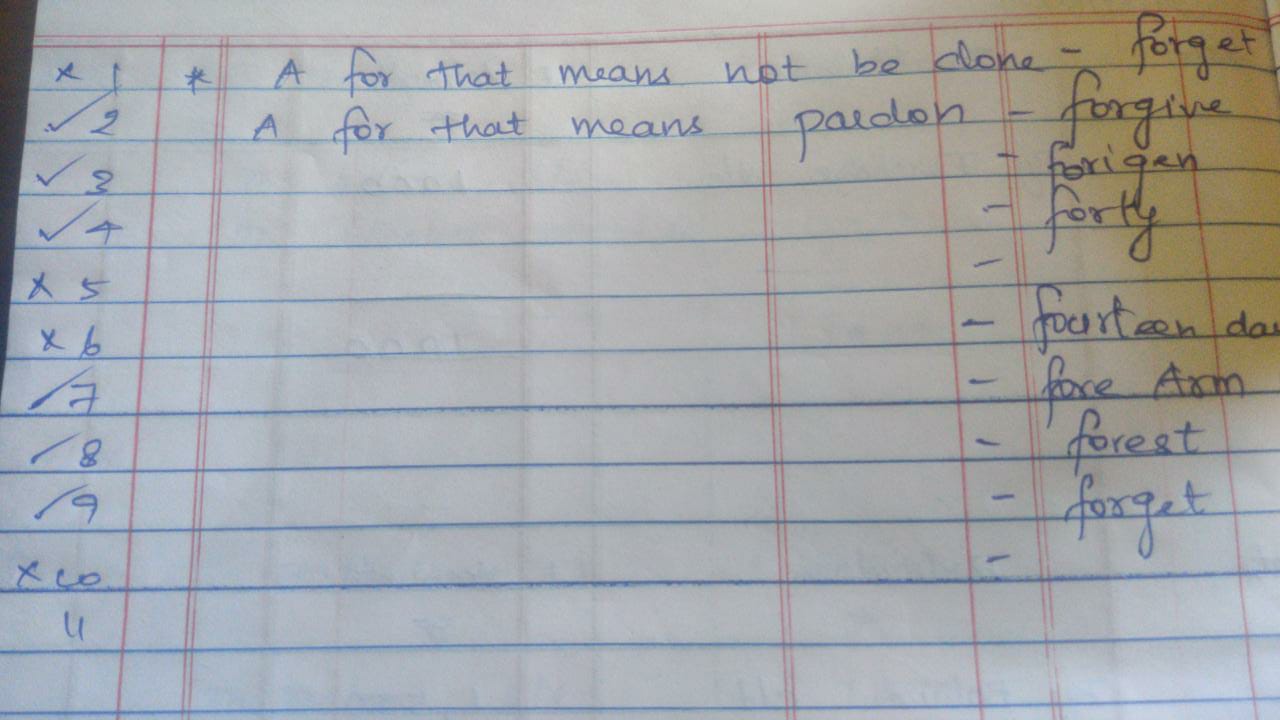 × 1 * A for that means not be done - forget
✓ 2 A for that means pardon - forgive
✓ 3 - forigen
✓ 4 - forty
× 5 -
× 6 - fourteen da
✓ 7 - fore Arm
✓ 8 - forest
✓ 9 - forget
× 10 -
11